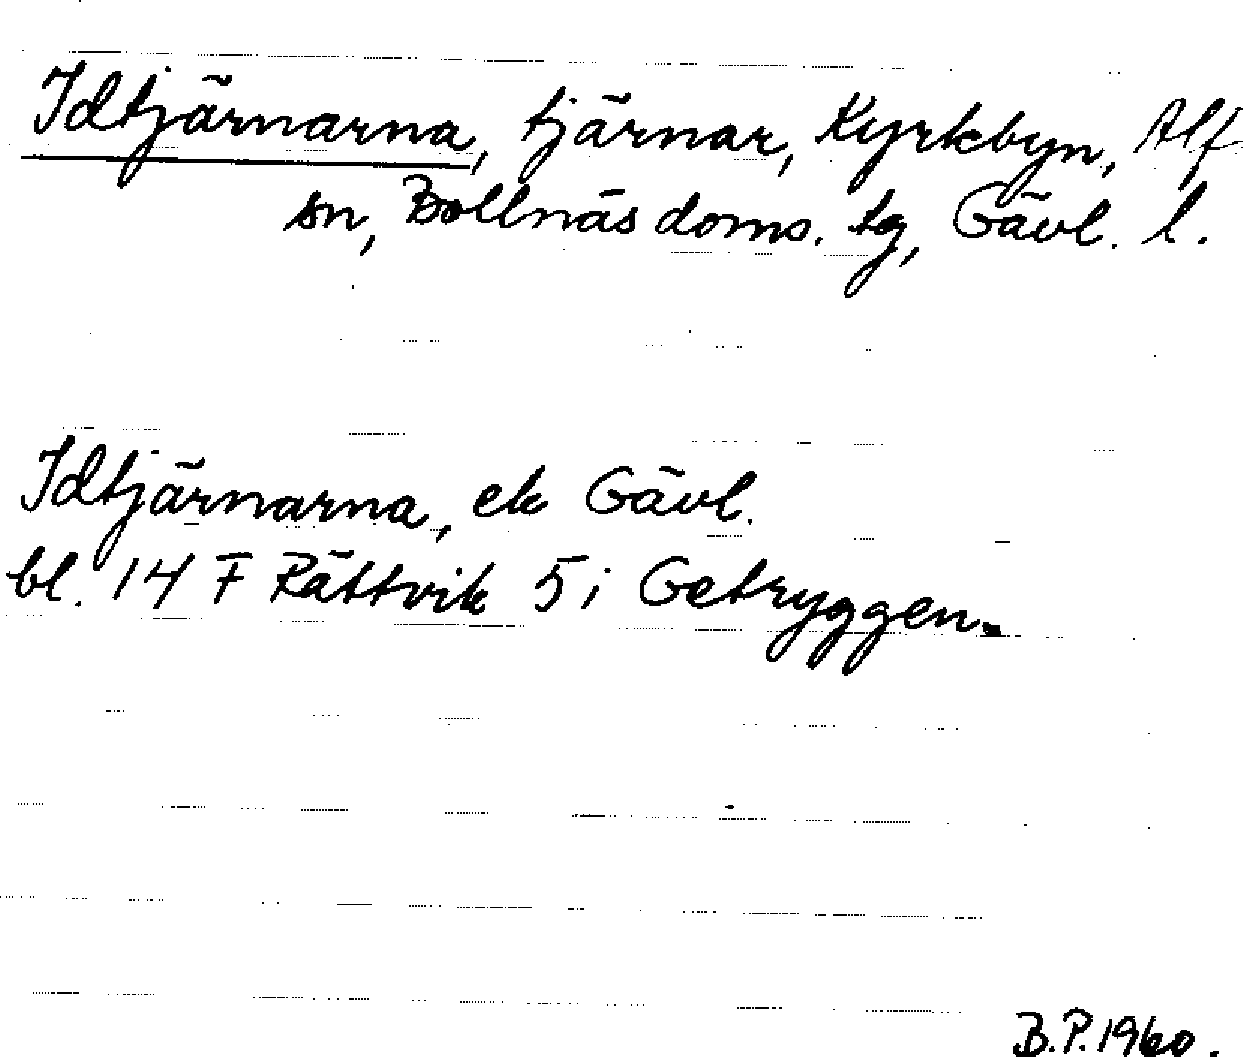 Idtjärnarna, tjärnar, Kyrkbyn, Alf
sn, Bollnäs doms. tg, Gävl. l.
Idtjärnarna, ek Gävl.
bl. 14 F Rättvik 5 i Getryggen.
B.P. 1960.